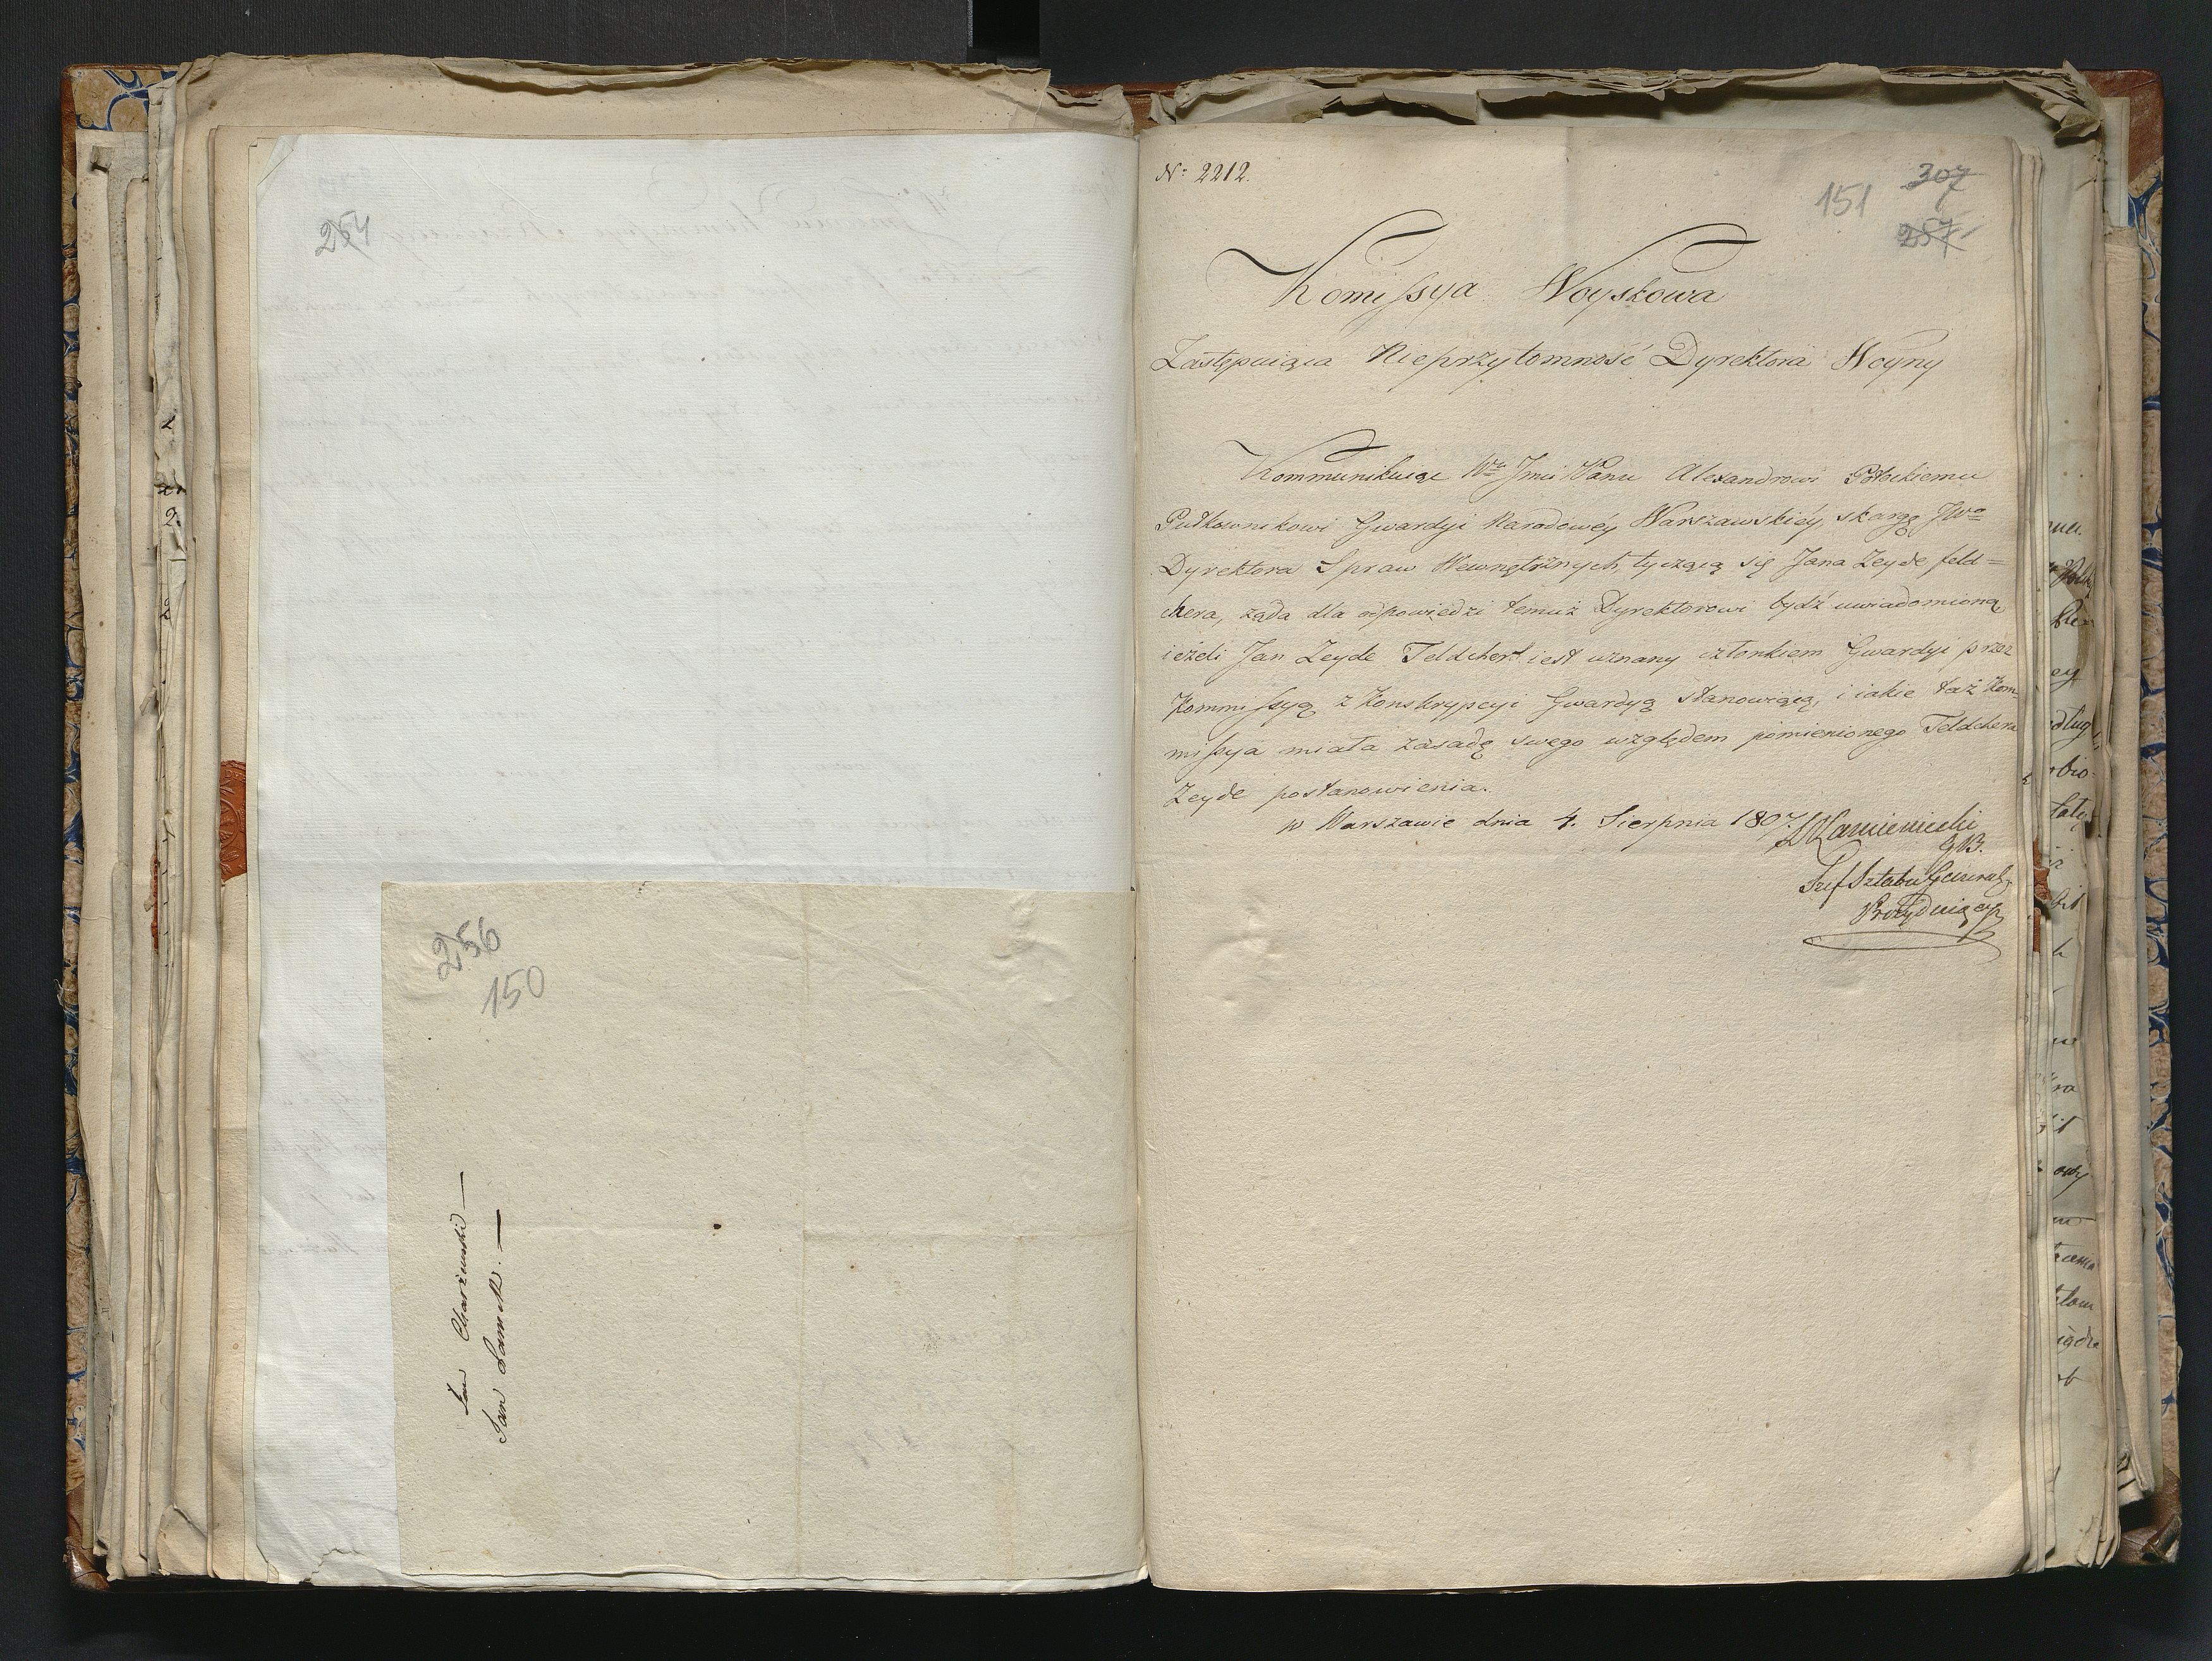 254
256
150
Jan Charzewski —
Jan
N: 2212.
151
307
257
Komissya Woyskowa
Zastępuiąca Nieprzytomność Dyrektora Woyny
Kommunikuiąc Wmu Jmci Panu Alexandrowi Potockiemu
Pułkownikowi Gwardyi Narodowéy Warszawskiéy, skargę JWo
Dyrektora Spraw Wewnętrznych, tyczącą się Jana Zeyde feld=
chera, ząda dla odpowiedzi temuż Dyrektorowi bydź uwiadomioną
ieżeli Jan Zeyde Feldcher iest uznany członkiem Gwardyi przez
Kommissyą z Konskrypcyi Gwardyą stanowiącą, i iakie taż Kom=
missya miała zasadę swego względem pomienionego Feldchera
Zeyde postanowienia.
w Warszawie dnia 4. Sierpnia 1807.
Kamieniecki
G.B.
Szef Sztabu General.
Prezyduiący